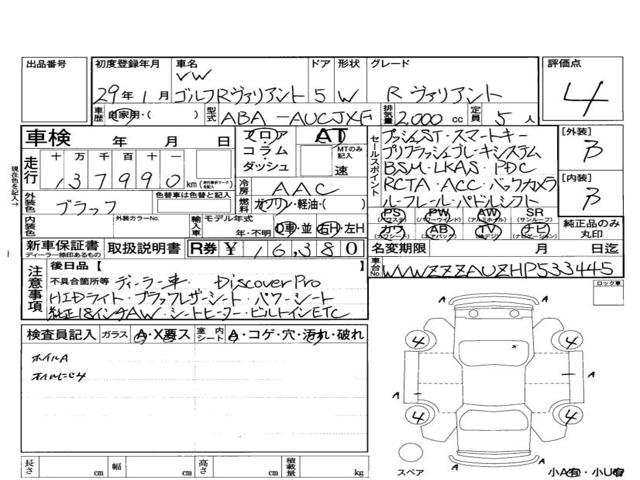 出品番号
初度登録年月 車名 ドア 形状 グレード 評価点
VW
29年1月 ゴルフRヴァリアント 5 W R ヴァリアント 4
車歴 自家用・( ) 型式 ABA-AUCJXF 排気量 2,000 cc 定員 5人
車検 年 月 日 フロア AT
コラム MTのみ記入
ダッシュ 速
走行 十万千百十 137990 km
冷房 AAC
セールスポイント
プッシュST・スマートキー
プリクラッシュブレーキシステム
BSM・LKAS・PDC
RCTA・ACC・バックカメラ
ルーフレール・パドルシフト
[外装] B
[内装] B
外装色 ブラック 色替車は色替前の色
燃料 ガソリン・軽油・( )
PS PW AW SR
カワ AB TV ナビ
純正品のみ丸印
内装色 外装カラーNo. 輸入車 モデル年式 年・不明 D車・並 右H・左H
新車保証書 取扱説明書 R券 ¥ 16,380
ディーラー捺印あるもの
名変期限 月 日迄
車台No. WVWZZZAUZHP533445
注意事項
後日品【 】
不具合箇所等 ディーラー車 Discover Pro
HIDライト・ブラックレザーシート・パワーシート
純正18インチAW・シートヒーター・ビルトインETC
ロック車
検査員記入 ガラス A・X要ス 室内シート A・コゲ・穴・汚れ・破れ
ホイルA
4 4
A A
4 4
A
長さ cm 幅 cm 高さ cm 積載量 kg
スペア
小A有・小U有
現在色を記入→